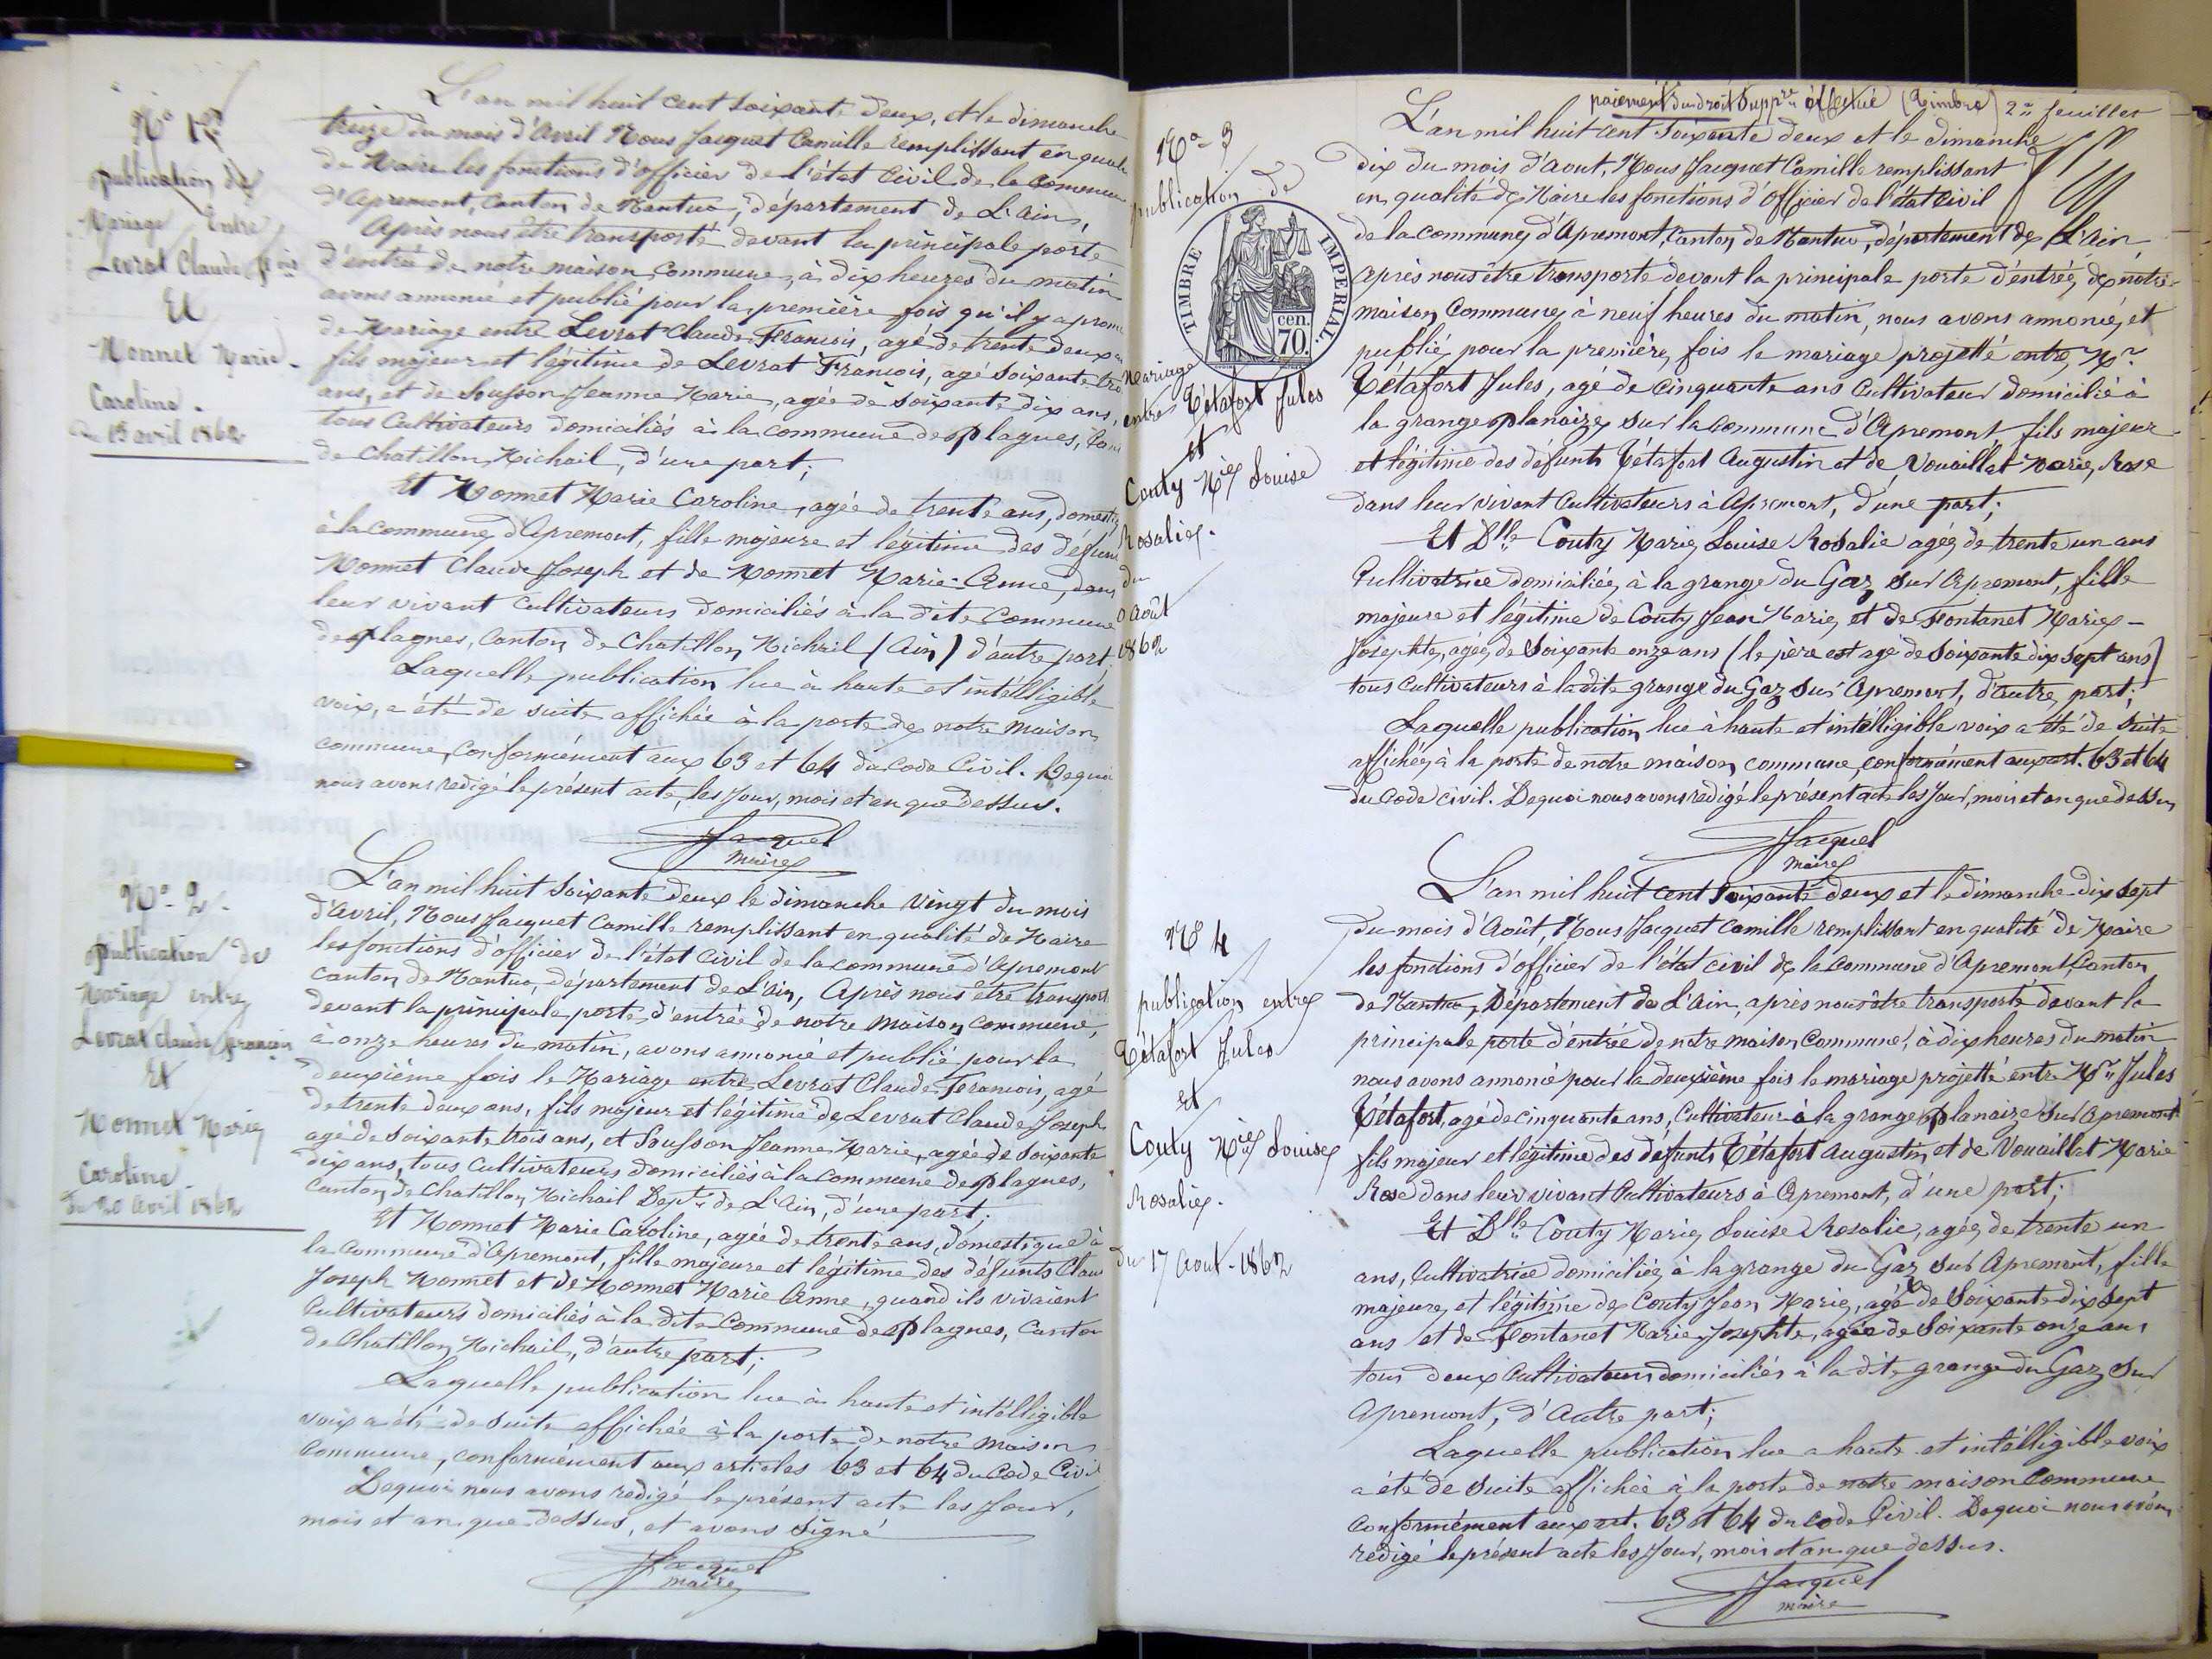 N° 1er
publication de
Mariage Entre
Levrat Claude fois
Et
Monnet Marie-
Caroline.
Du 13 avril 1862
L'an mil huit cent soixante deux, et le dimanche
treize du mois d'Avril Nous Jacquet Camille remplissant en qualité
de Maire les fonctions d'officier de l'état Civil de la commune
d'Apremont, Canton de Nantua, département de L'Ain,
Après nous être transporté devant la principale porte
d'entrée de notre maison commune, à dix heures du matin
avons annoncé et publié pour la première fois qu'il y a prom
de Mariage entre Levrat Claude François, agé de trente deux ans
fils majeur et légitime de Levrat François, agé soixante trois
ans, et de Sousson Jeanne Marie, agée de soixante dix ans,
tous Cultivateurs domiciliés à la commune de plagnes, Canton
de Chatillon Michail, d'une part;
Et Monnet Marie Caroline, agée de trente ans, domestique
à la commune d'Apremont, fille majeure et légitime des défunts
Monnet Claude Joseph et de Monnet Marie-Anne, dans
leur vivant Cultivateurs domiciliés à la dite Commune
de plagnes, Canton de Chatillon Michail (Ain) d'autre part
Laquelle publication lue à haute et intélligible
voix, a été de suite affichée à la porte de notre maison
commune, conformément aux 63 et 64 du Code Civil. Dequoi
nous avons redigé le présent acte, les Jour, mois et an que dessus.
Jacquet
maire
N° 2
publication de
Mariage entre
Levrat Claude françois
Et
Monnet Marie
Caroline
Du 20 avril 1862
L'an mil huit soixante deux le dimanche vingt du mois
d'avril, Nous Jacquet Camille remplissant en qualité de Maire
les fonctions d'officier de l'état Civil de la commune d'Apremont
Canton de Nantua, département de L'Ain, Après nous être transporté
devant la principale porte d'entrée de notre maison commune,
à onze heures du matin, avons annoncé et publié pour la
deuxième fois le Mariage entre Levrat Claude François, agé
de trente deux ans, fils majeur et légitime de Levrat Claude Joseph
agé de soixante trois ans, et Sousson Jeanne Marie, agée de soixante
dix ans, tous Cultivateurs domiciliés à la commune de plagnes,
Canton de Chatillon Michail Dept de L'Ain, d'une part;
Et Monnet Marie Caroline, agée de trente ans, domestique à
la Commune d'Apremont, fille majeure et légitime des défunts Claude
Joseph Monnet et de Monnet Marie Anne, quand ils vivaient
Cultivateurs domiciliés à la dite Commune de plagnes, Canton
de Chatillon Michail, d'autre part;
Laquelle publication lue à haute et intélligible
voix a été de suite affichée à la porte de notre maison
Commune, conformément aux articles 63 et 64 du Code Civil
Dequoi nous avons redigé le présent acte les Jour,
mois et an que dessus, et avons signé
Jacquet
maire
paiement du droit suppre effectué (Timbre) 2e feuillet
N° 3
publication de
TIMBRE IMPERIAL
70 cen.
Mariage
entre Tétafort Jules
et
Couty Mie Louise
Rosalie.
du
10 Août
1862
L'an mil huit cent soixante deux et le dimanche
dix du mois d'aout, Nous Jacquet Camille remplissant
en qualité de Maire les fonctions d'officier de l'état civil
de la commune d'Apremont, Canton de Nantua, département de L'Ain
Après nous être transporté devant la principale porte d'entrée de notre
maison Commune, à neuf heures du matin, nous avons annoncé et
publié pour la première fois le mariage projetté entre Mr
Tétafort Jules, agé de Cinquante ans Cultivateur domicilié à
la grange planaize, sur la commune d'Apremont, fils majeur
et légitime des défunts Tétafort Augustin et de Vouaillat Marie, Rose
dans leur vivant Cultivateurs à Apremont, d'une part;
Et Dlle Couty Marie, Louise Rosalie agée de trente un ans
Cultivatrice domiciliée à la grange du Gaz sur Apremont, fille
majeure et légitime de Couty Jean Marie, et de Fontanet Marie-
Josephte, agée de soixante onze ans (le père est agé de soixante dix sept ans)
tous Cultivateurs à la dite grange du Gaz sur Apremont, d'autre part;
Laquelle publication lue à haute et intélligible voix a été de suite
affichée à la porte de notre maison commune, conformément aux art. 63 et 64
du Code civil. Dequoi nous avons redigé le présent acte les Jour, mois et an que dessus
Jacquet
maire
N° 4
publication entre
Tétafort Jules
et
Couty Mie Louise
Rosalie.
du 17 Aout-1862
L'an mil huit cent soixante deux et le dimanche dix sept
du mois d'Août, Nous Jacquet Camille remplissant en qualité de Maire
les fonctions d'officier de l'état civil de la Commune d'Apremont, Canton
de Nantua, Département de L'Ain, après nous être transporté devant la
principale porte d'entrée de notre maison Commune, à dix heures du matin
nous avons annoncé pour la deuxième fois le mariage projetté entre Mr Jules
Tétafort, agé de cinquante ans, Cultivateur à la grange planaize sur Apremont
fils majeur et légitime des défunts Tétafort Augustin et de Vouaillat Marie
Rose dans leur vivant Cultivateurs à Apremont, d'une part;
Et Dlle Couty Marie, Louise Rosalie, agée de trente un
ans, Cultivatrice domiciliée à la grange du Gaz sur Apremont, fille
majeure et légitime de Couty Jean Marie, agé de Soixante dix sept
ans et de Fontanet Marie Josephte, agée de Soixante onze ans
tous deux Cultivateurs domiciliés à la dite grange du Gaz sur
Apremont, d'Autre part;
Laquelle publication lue a haute et intélligible voix
a été de suite affichée à la porte de notre maison Commune
conformément aux art. 63 et 64 du code Civil. Dequoi nous avons
redigé le présent acte les Jour, mois et an que dessus.
Jacquet
maire